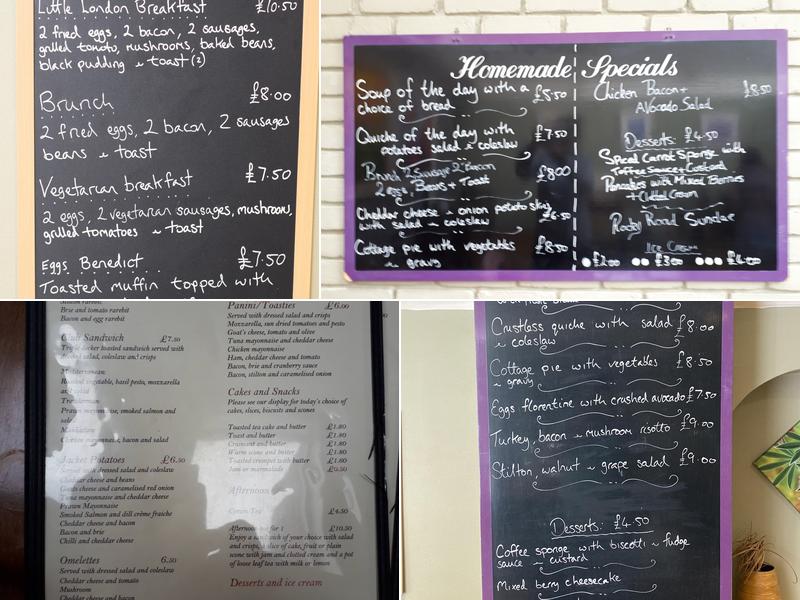 Little London Breakfast £10.50
2 fried eggs, 2 bacon, 2 sausages,
grilled tomato, mushrooms, baked beans,
black pudding & toast (2)
Brunch £8.00
2 fried eggs, 2 bacon, 2 sausages
beans & toast
Vegetarian breakfast £7.50
2 eggs, 2 vegetarian sausages, mushroom,
grilled tomatoes & toast
Eggs Benedict £7.50
Toasted muffin topped with
Homemade Specials
Soup of the day with a £5.50
choice of bread
Quiche of the day with £7.50
potatoes salad & coleslaw
Brunch 2 Sausage 2 Bacon £8.00
2 eggs Beans + Toast
Cheddar cheese & onion potato skins £6.50
with salad & coleslaw
Cottage pie with vegetables £8.50
& gravy
Chicken Bacon + £8.50
Avocado Salad
Desserts: £4.50
Spiced Carrot Sponge with
Toffee Sauce + Custard
Pancakes with Mixed Berries
+ Clotted Cream
Rocky Road Sundae
Ice Cream
£2.00 £3.00 £4.00
Brie and tomato rarebit
Bacon and egg rarebit
Club Sandwich £7.50
Triple decker toasted sandwich served with
dressed salad, coleslaw and crisps
Mediterranean
Roasted vegetable, basil pesto, mozzarella
Prawn mayonnaise, smoked salmon and
Chicken mayonnaise, bacon and salad
Jacket Potatoes £6.50
Served with dressed salad and coleslaw
Cheddar cheese and beans
Goats cheese and caramelised red onion
Tuna mayonnaise and cheddar cheese
Prawn Mayonnaise
Smoked Salmon and dill crème fraiche
Cheddar cheese and bacon
Bacon and brie
Chilli and cheddar cheese
Omelettes 6.50
Served with dressed salad and coleslaw
Cheddar cheese and tomato
Mushroom
Cheddar cheese and bacon
Panini/Toasties £6.00
Served with dressed salad and crisps
Mozzarella, sun dried tomatoes and pesto
Goat's cheese, tomato and olive
Tuna mayonnaise and cheddar cheese
Chicken mayonnaise
Ham, cheddar cheese and tomato
Bacon, brie and cranberry sauce
Bacon, stilton and caramelised onion
Cakes and Snacks
Please see our display for today's choice of
cakes, slices, biscuits and scones
Toasted tea cake and butter £1.80
Toast and butter £1.80
Crumpet and butter £1.80
Warm scone and butter £1.80
Toasted crumpet with butter £1.80
Jam or marmalade £0.50
Afternoon
Cream Tea £4.50
Afternoon tea for 1 £10.50
Enjoy a sandwich of your choice with salad
and crisps, a slice of cake, fruit or plain
scone with jam and clotted cream and a pot
of loose leaf tea with milk or lemon
Desserts and ice cream
Crustless quiche with salad £8.00
& coleslaw
Cottage pie with vegetables £8.50
& gravy
Eggs florentine with crushed avocado £7.50
Turkey, bacon & mushroom risotto £9.00
Stilton, walnut & grape salad £9.00
Desserts: £4.50
Coffee sponge with biscotti & fudge
sauce & custard
Mixed berry cheesecake